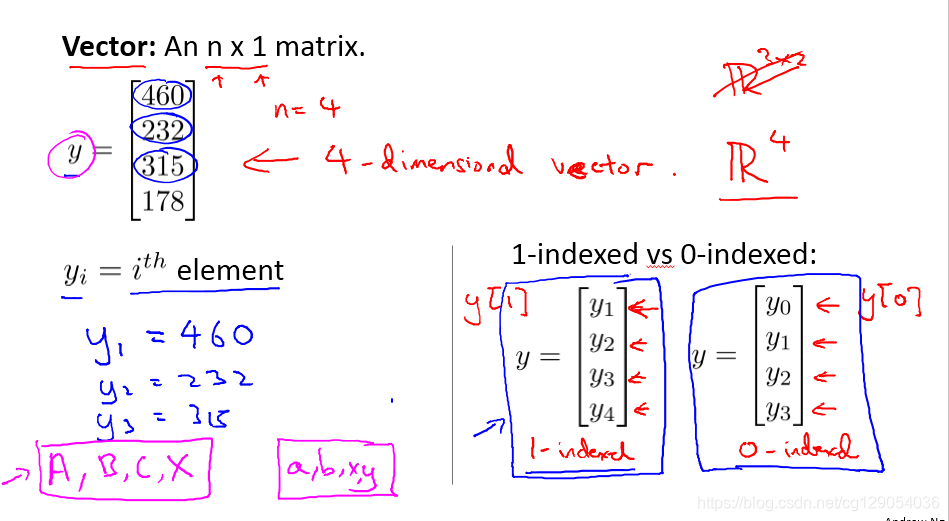 Vector: An n x 1 matrix.
ℝ³ˣ²
n = 4
y = [460
232
315
178]
← 4-dimensional vector.
ℝ⁴
yᵢ = iᵗʰ element
y₁ = 460
y₂ = 232
y₃ = 315
A, B, C, X
a, b, x, y
1-indexed vs 0-indexed:
y[1]
y = [y₁
y₂
y₃
y₄]
1-indexed
y[0]
y = [y₀
y₁
y₂
y₃]
0-indexed
https://blog.csdn.net/cg129054036
Andrew Ng